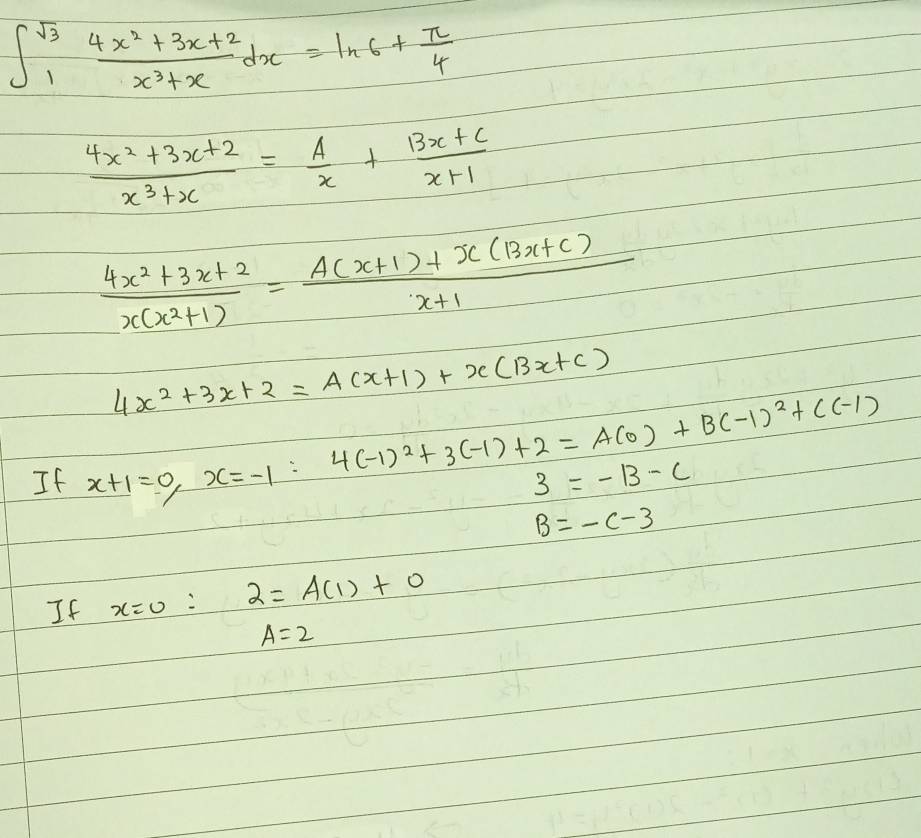 ∫₁^√3 (4x² + 3x + 2)/(x³ + x) dx = ln 6 + π/4
(4x² + 3x + 2)/(x³ + x) = A/x + (Bx + C)/(x + 1)
(4x² + 3x + 2)/(x(x² + 1)) = (A(x + 1) + x(Bx + C))/(x + 1)
4x² + 3x + 2 = A(x + 1) + x(Bx + C)
If x + 1 = 0, x = -1 : 4(-1)² + 3(-1) + 2 = A(0) + B(-1)² + C(-1)
3 = -B - C
B = -C - 3
If x = 0 : 2 = A(1) + 0
A = 2